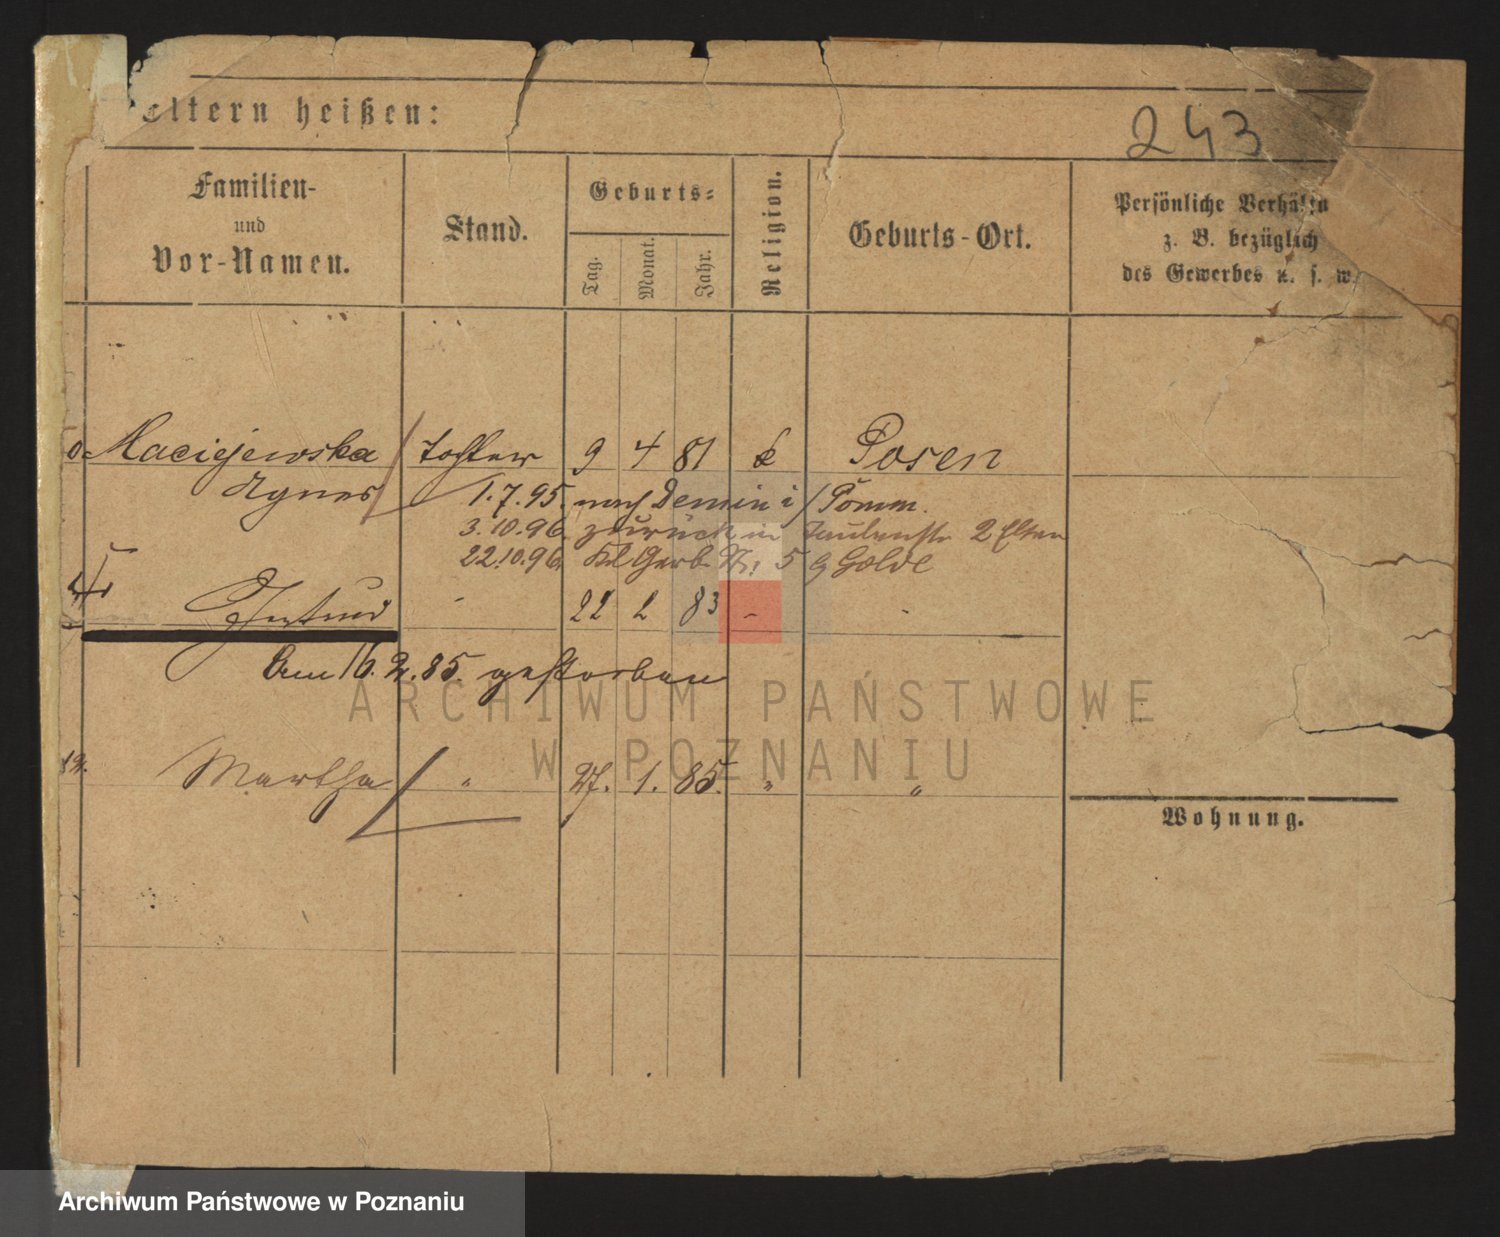 eltern heißen:
243
Familien-
und
Vor-Namen.
Stand.
Geburts-
Tag.
Monat.
Jahr.
Religion.
Geburts-Ort.
Persönliche Verhältn
z. B. bezüglich
des Gewerbes u. s. w.
Maciejewska Tochter 9 4 81 k Posen
Agnes 1.7.95. nach Demmin i/Pomm.
3.10.96. zurück in Taubenstr 2 Eltern
22.10.96. Kl Gerb. 5
Gertrud 22 2 83 -
Am 16.2.85. gestorben
Martha " 27. 1. 85. " "
Wohnung.
ARCHIWUM PAŃSTWOWE
W POZNANIU
Archiwum Państwowe w Poznaniu